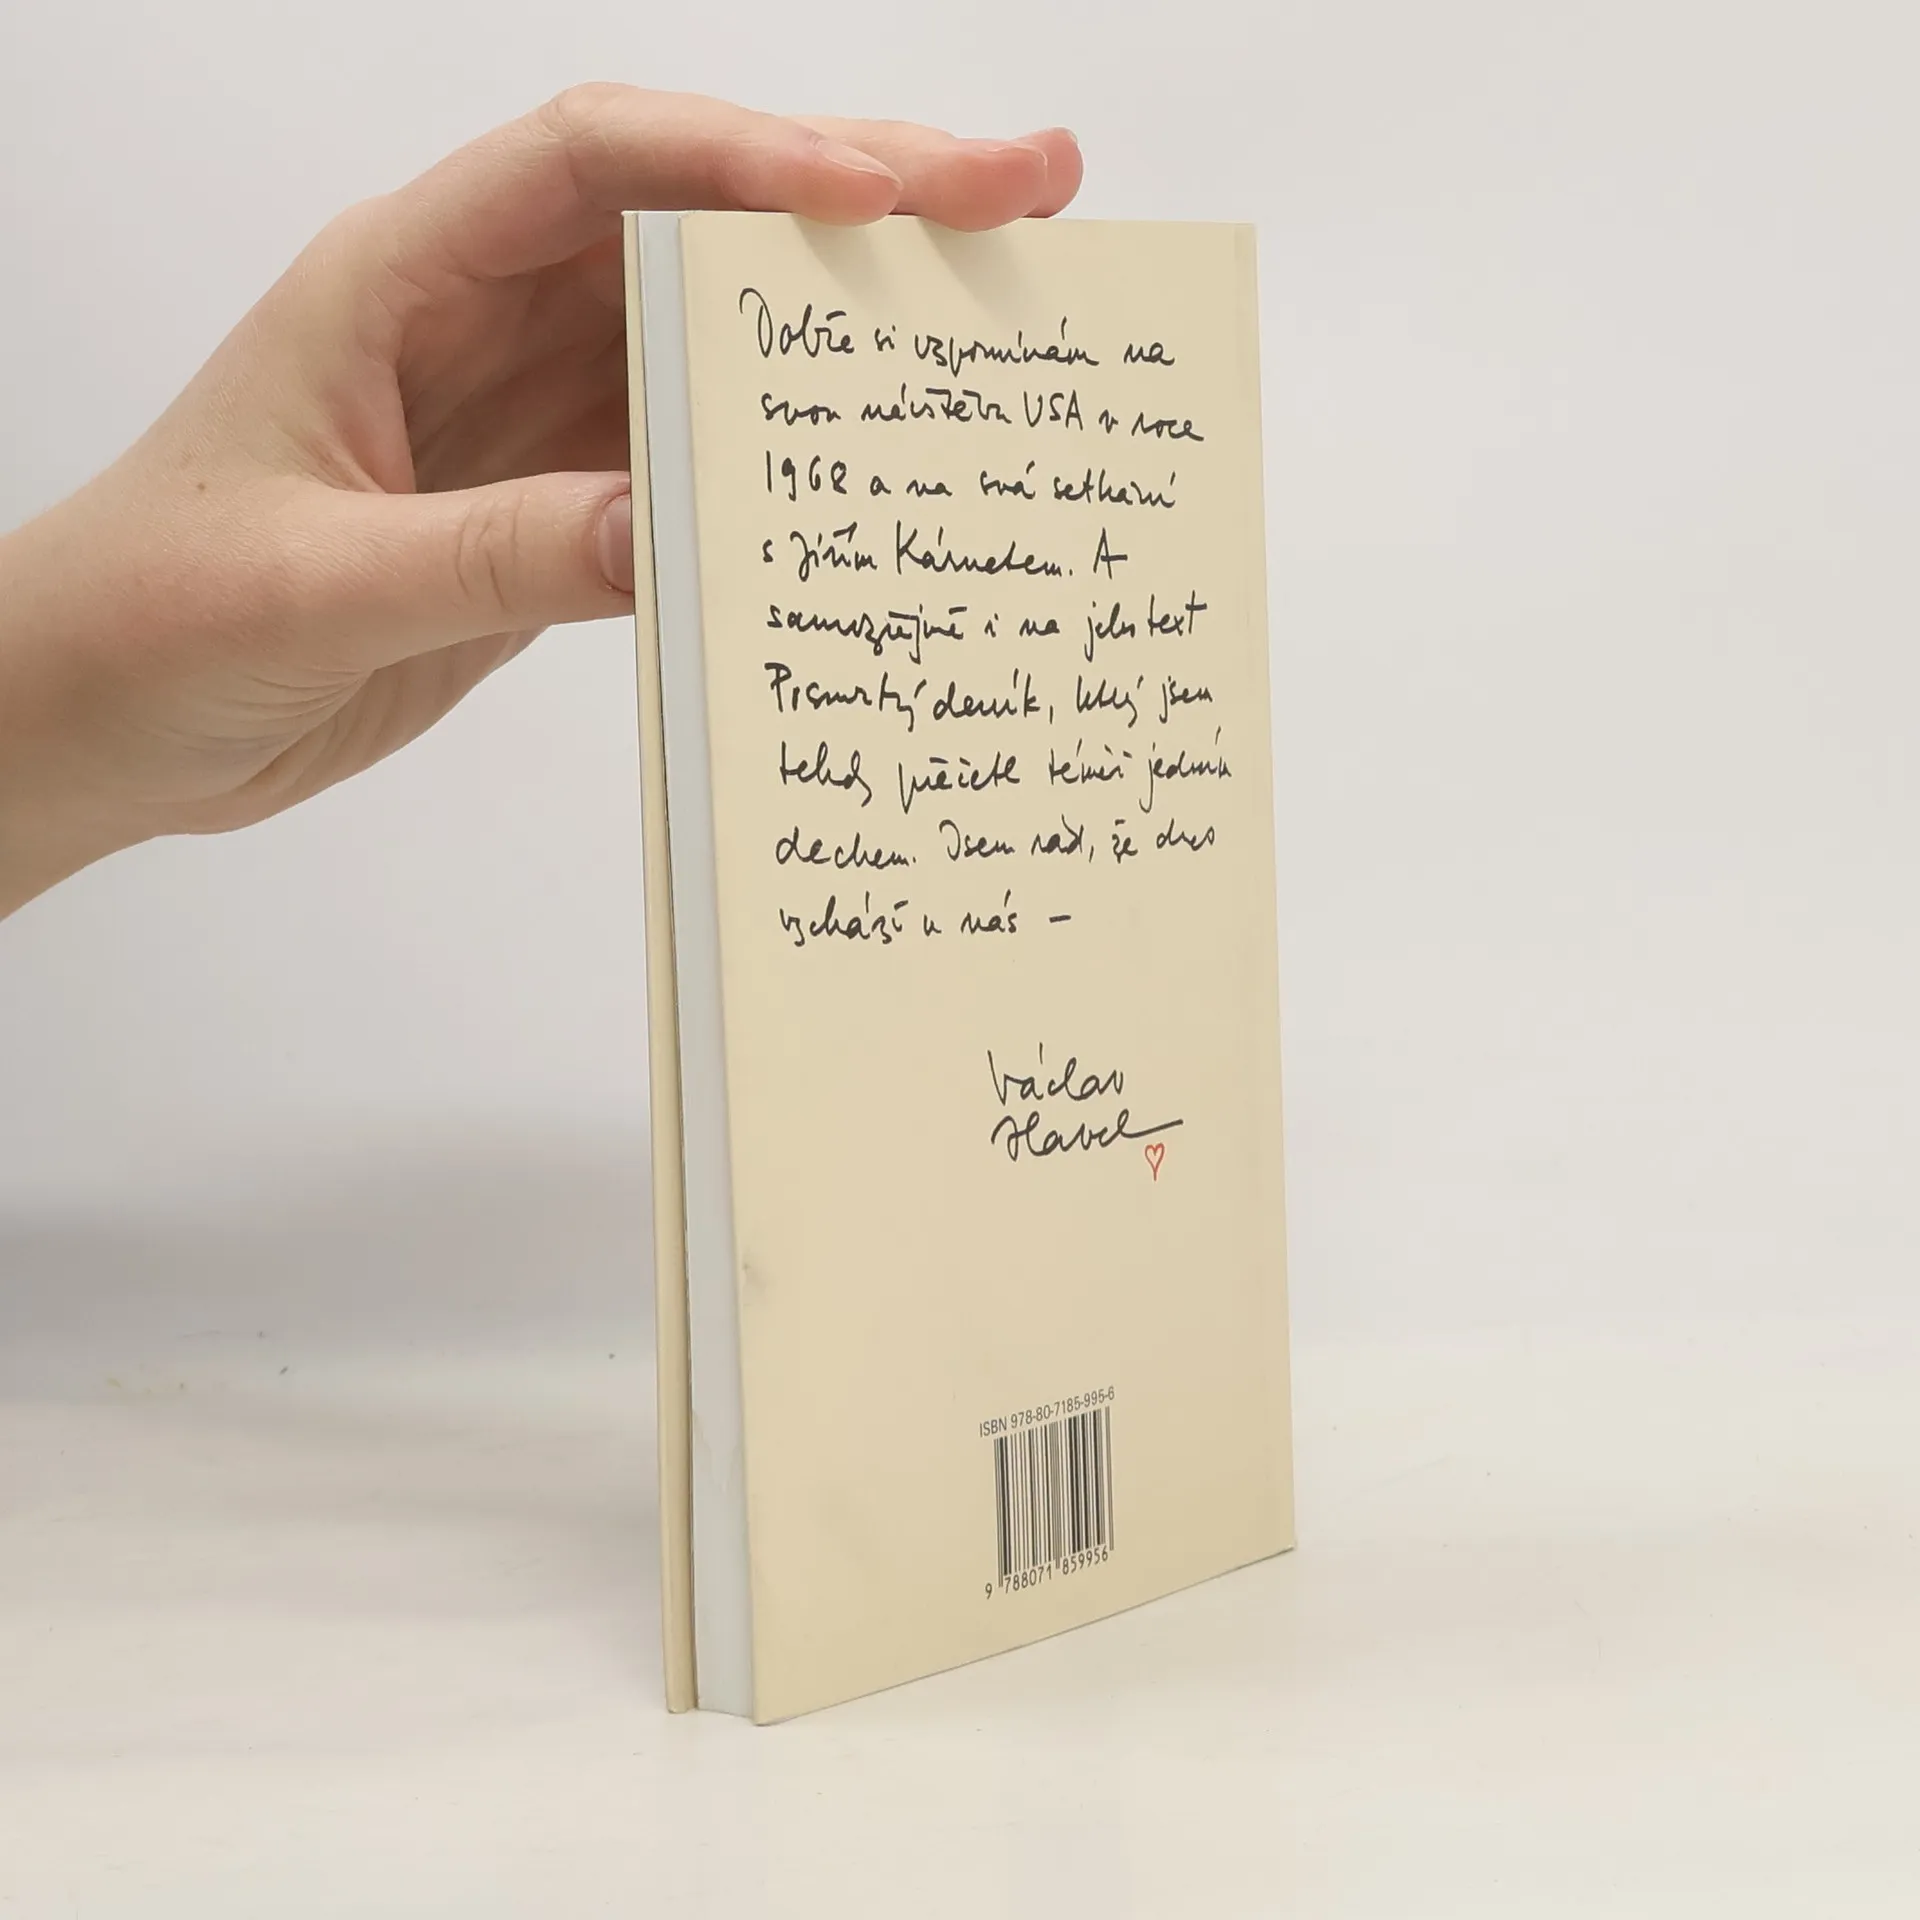 Dobře si vzpomínám na
svou návštěvu USA v roce
1968 a na svá setkání
s Jiřím Kárnetem. A
samozřejmě i na jeho text
Posmrtný deník, který jsem
tehdy přečetl téměř jedním
dechem. Jsem rád, že dnes
vychází u nás –
Václav
Havel
ISBN 978-80-7185-995-6
9 788071 859956